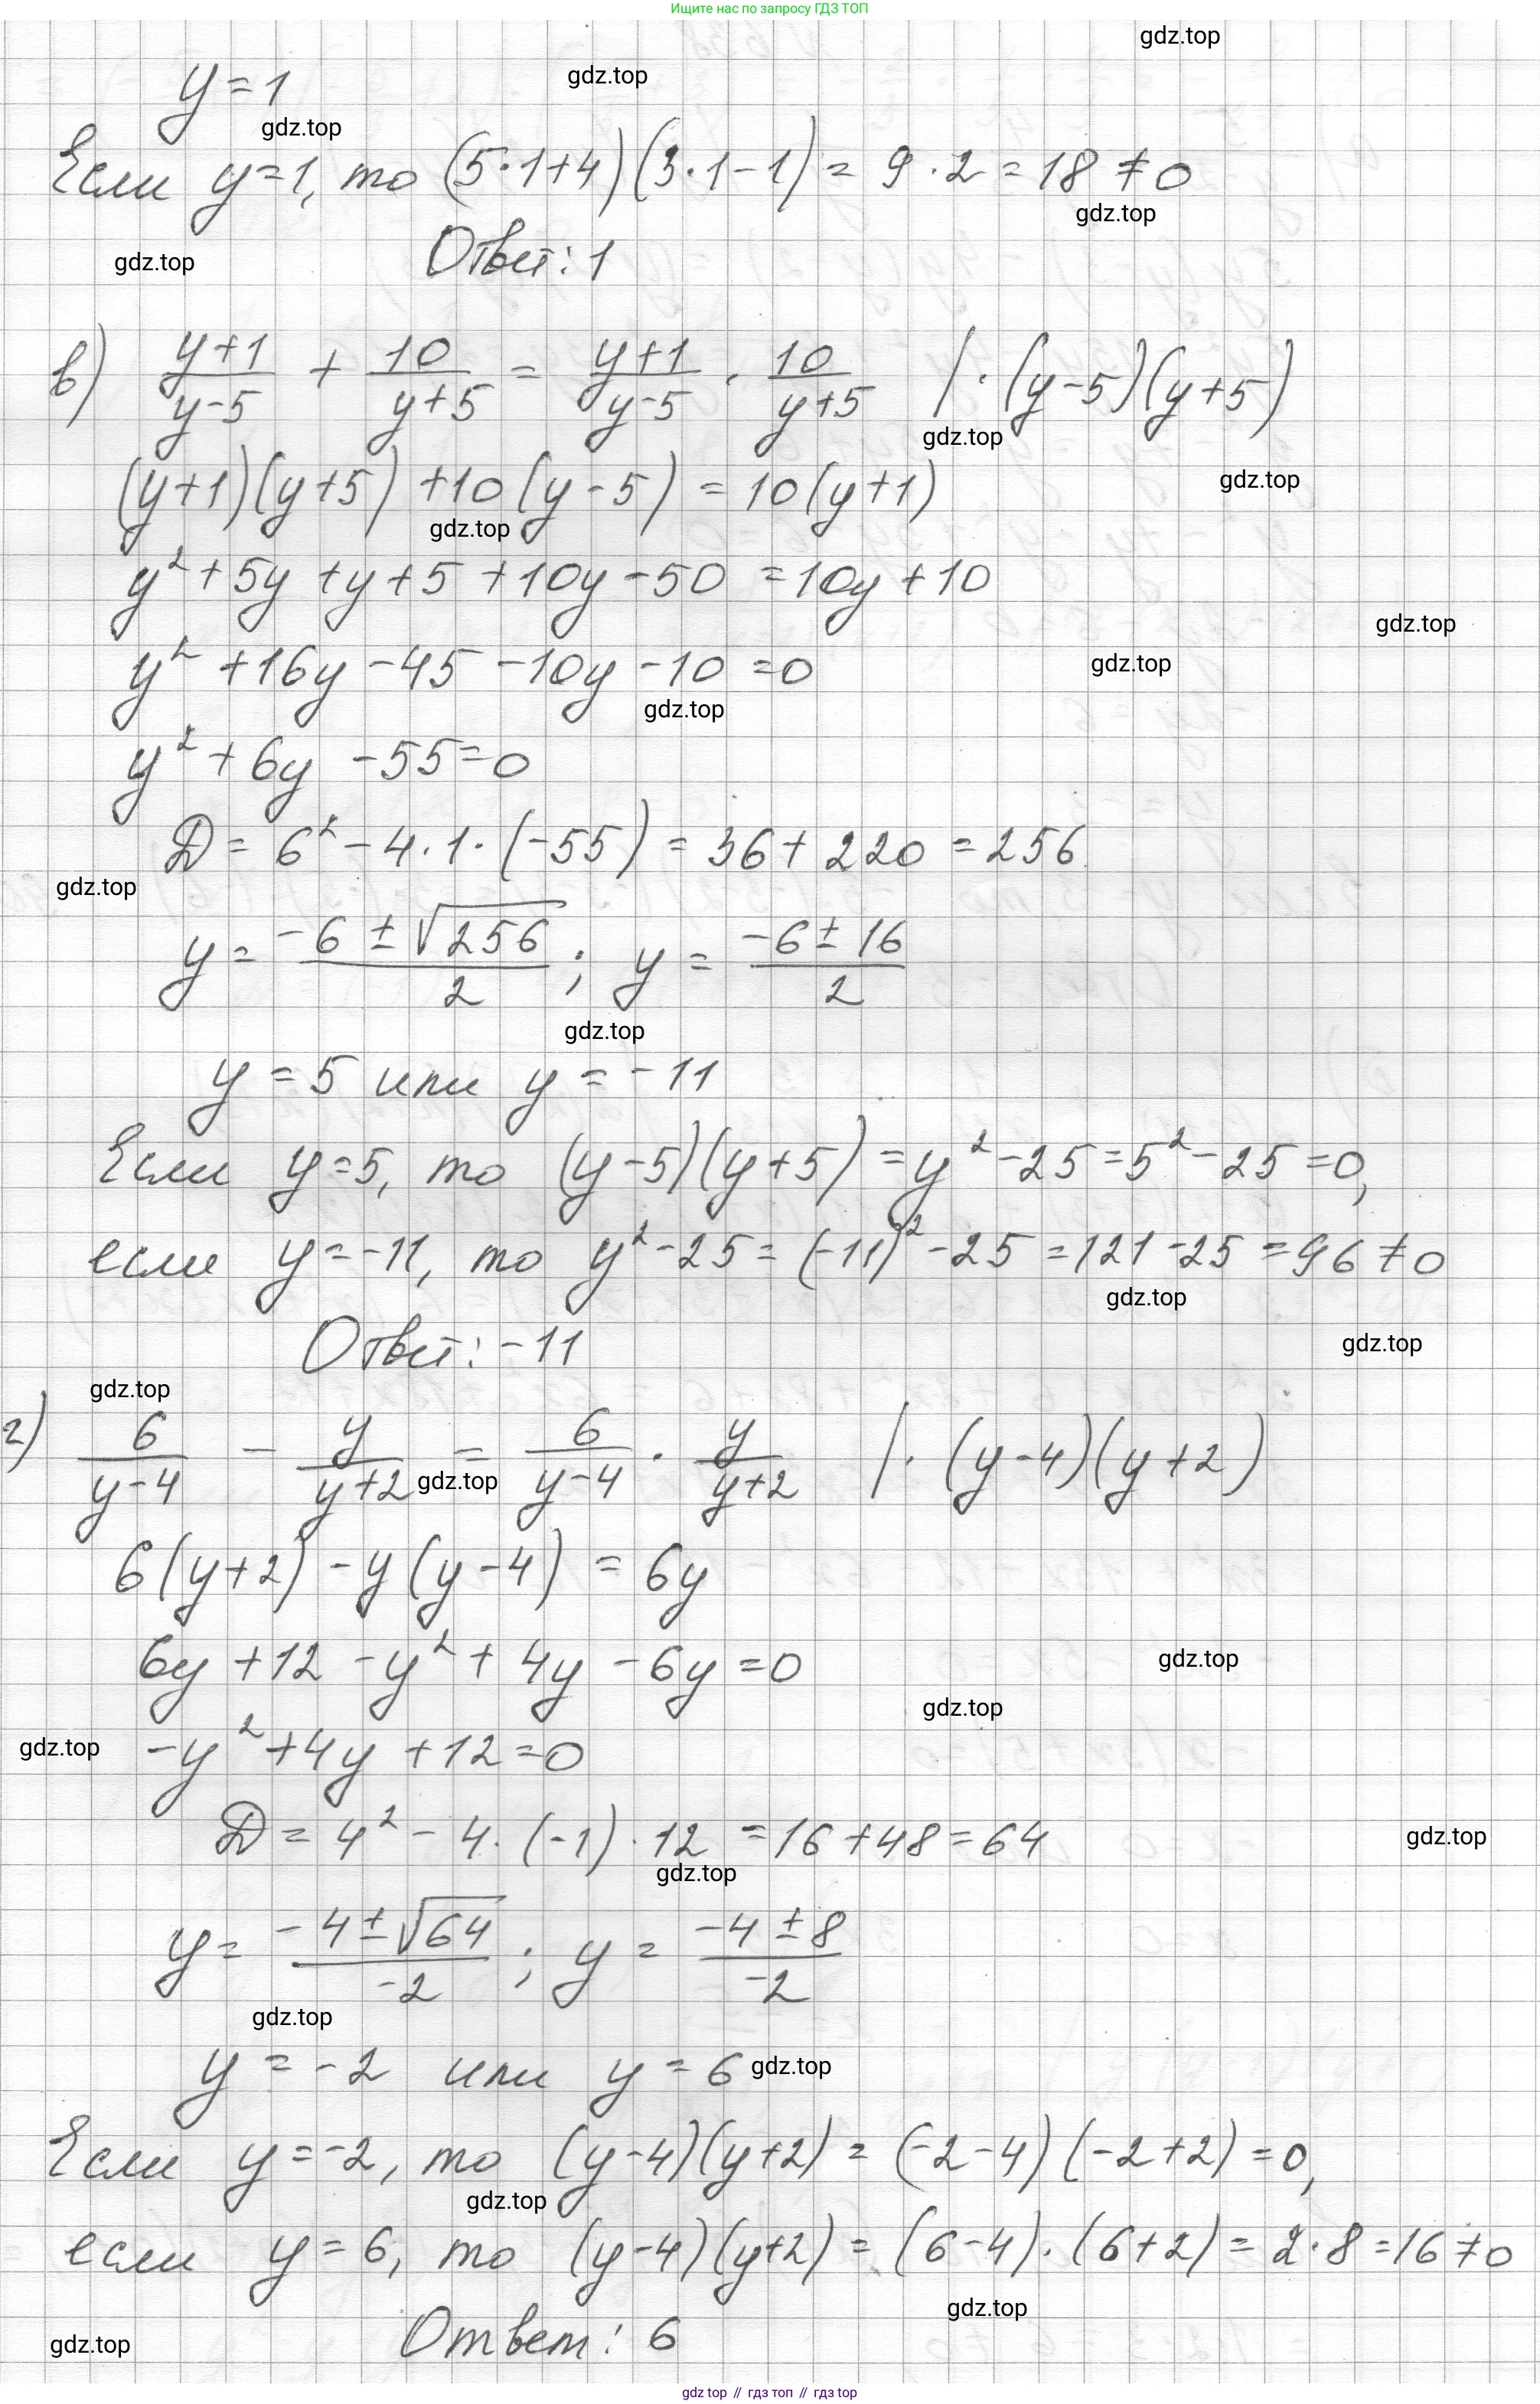 Ищите нас по запросу ГДЗ ТОП
gdz.top
y = 1
gdz.top
gdz.top
Если y=1, то (5·1+4)(3·1-1) = 9·2 = 18 ≠ 0
gdz.top
Ответ: 1
gdz.top
в) (y+1)/(y-5) + 10/(y+5) = (y+1)/(y-5) · 10/(y+5) | · (y-5)(y+5)
gdz.top
(y+1)(y+5) + 10(y-5) = 10(y+1)
gdz.top
gdz.top
y² + 5y + y + 5 + 10y - 50 = 10y + 10
gdz.top
y² + 16y - 45 - 10y - 10 = 0
gdz.top
gdz.top
y² + 6y - 55 = 0
D = 6² - 4·1·(-55) = 36 + 220 = 256
gdz.top
y = (-6 ± √256)/2 ; y = (-6 ± 16)/2
gdz.top
y = 5 или y = -11
Если y=5, то (y-5)(y+5) = y² - 25 = 5² - 25 = 0,
если y=-11, то y² - 25 = (-11)² - 25 = 121 - 25 = 96 ≠ 0
gdz.top
Ответ: -11
gdz.top
gdz.top
г) 6/(y-4) - y/(y+2) = 6/(y-4) · y/(y+2) | · (y-4)(y+2)
gdz.top
6(y+2) - y(y-4) = 6y
6y + 12 - y² + 4y - 6y = 0
gdz.top
gdz.top
-y² + 4y + 12 = 0
gdz.top
D = 4² - 4·(-1)·12 = 16 + 48 = 64
gdz.top
gdz.top
y = (-4 ± √64)/-2 ; y = (-4 ± 8)/-2
gdz.top
y = -2 или y = 6
gdz.top
Если y=-2, то (y-4)(y+2) = (-2-4)(-2+2) = 0,
gdz.top
если y=6, то (y-4)(y+2) = (6-4)·(6+2) = 2·8 = 16 ≠ 0
gdz.top
Ответ: 6
gdz.top
gdz top // гдз топ // гдз top